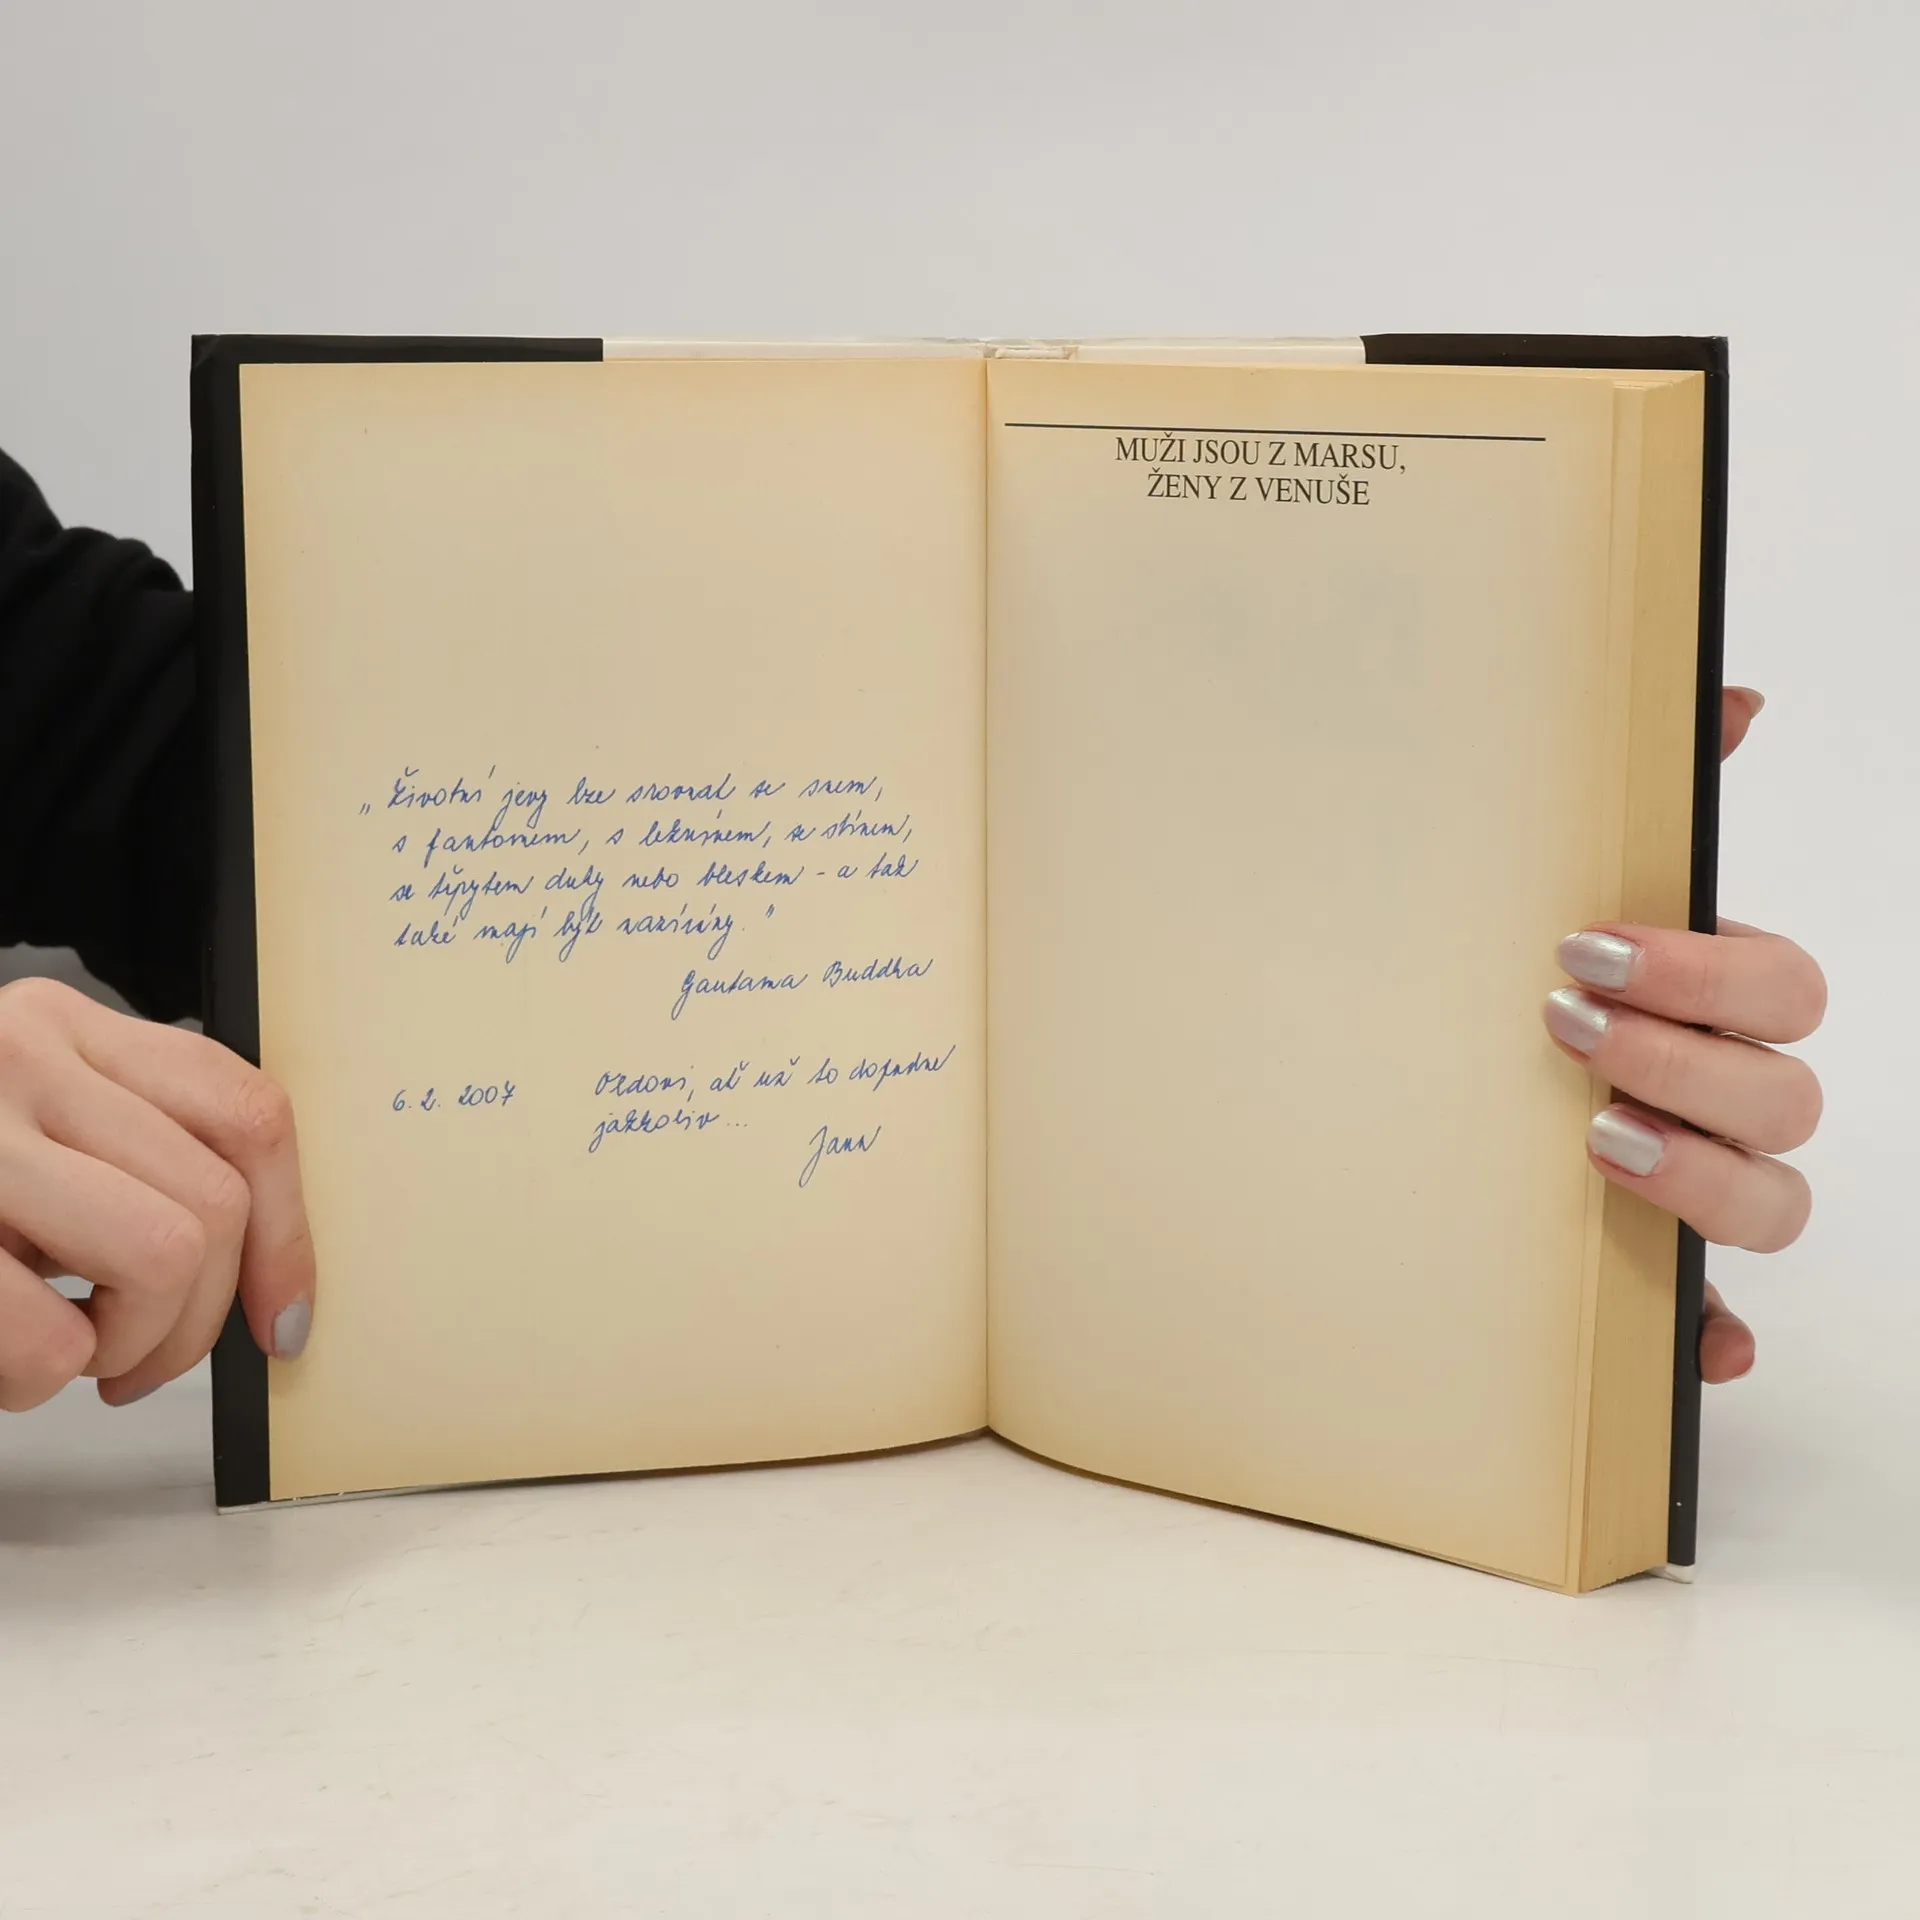 „Životní jevy lze srovnat se snem,
s fantomem, s ležnínem, se stínem,
se třpytem duhy nebo bleskem - a tak
také mají být nazírány."
Gautama Buddha
6. 2. 2007
Oldovi, ať už to dopadne
jakkoliv...
Jana
MUŽI JSOU Z MARSU,
ŽENY Z VENUŠE